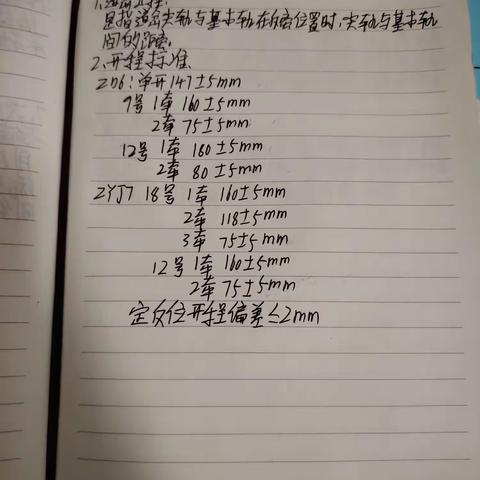 是指道岔尖轨与基本轨在斥离位置时,尖轨与基本轨
间的距离.
2、开程标准
ZD6:单开147±5mm
9号 1牵 160±5mm
2牵 75±5mm
12号 1牵 160±5mm
2牵 80±5mm
ZYJ7 18号 1牵 160±5mm
2牵 118±5mm
3牵 75±5mm
12号 1牵 160±5mm
2牵 75±5mm
定反位开程偏差≤2mm